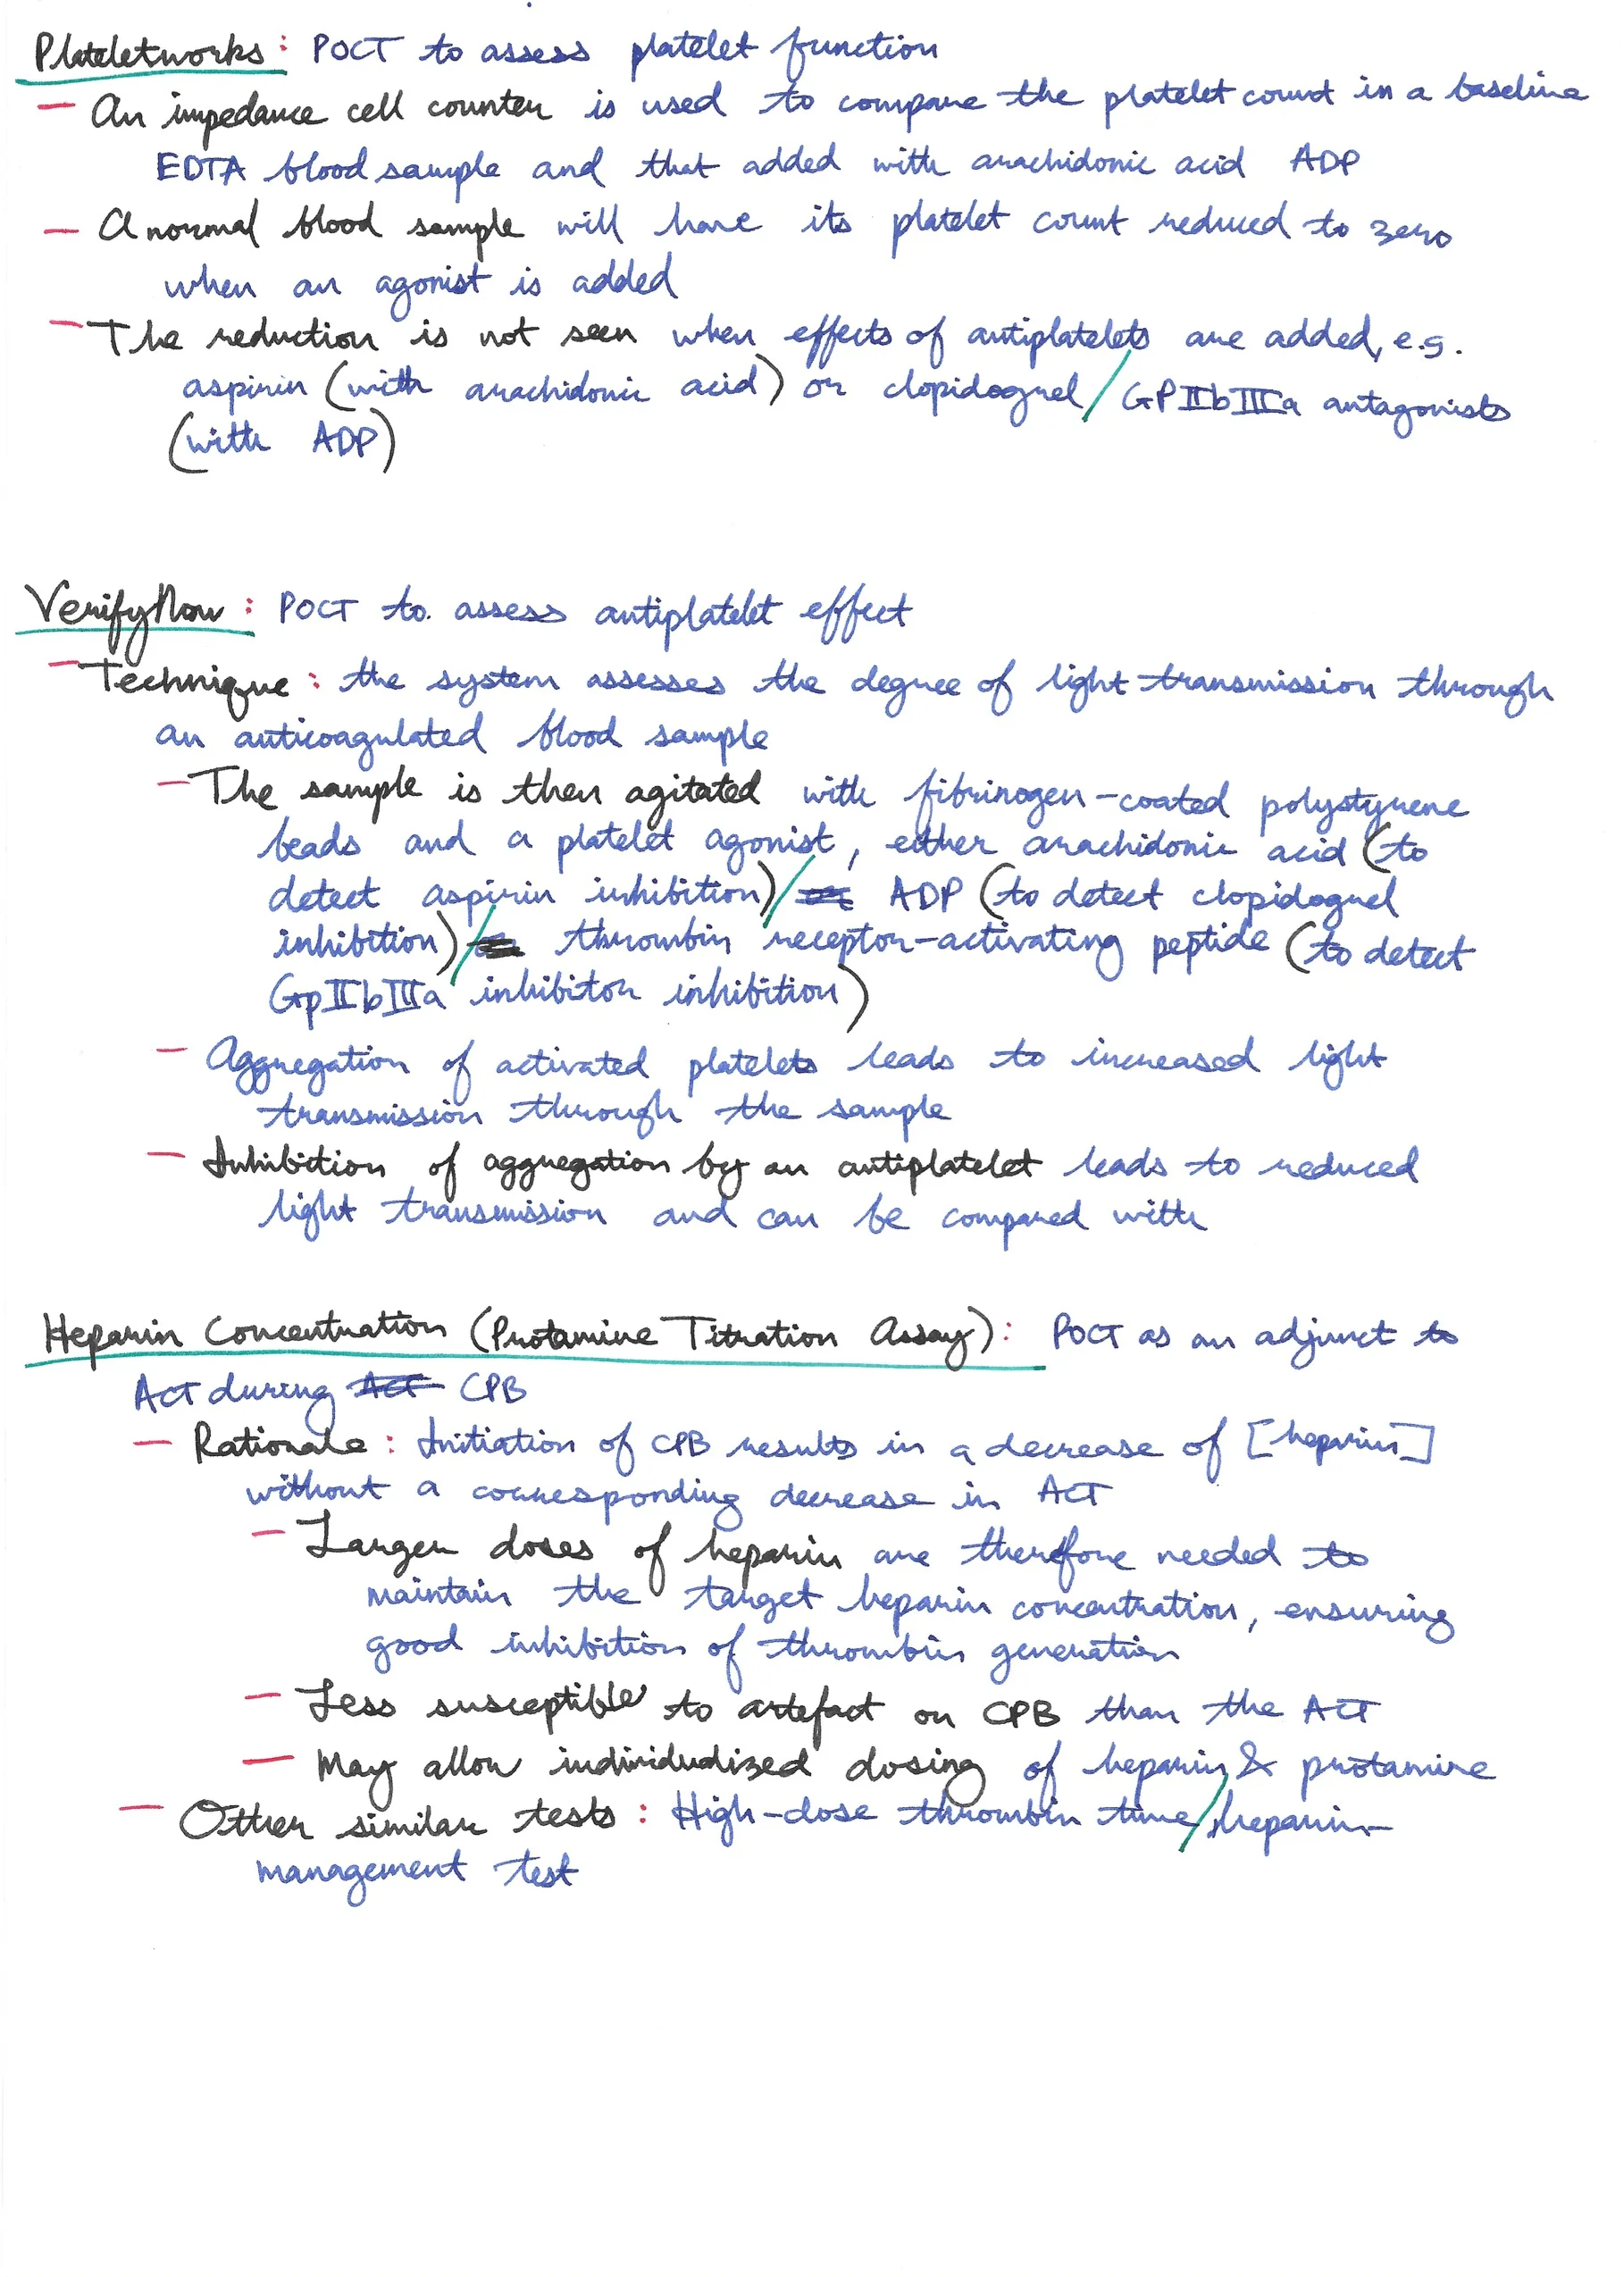 Plateletworks: POCT to assess platelet function
— An impedance cell counter is used to compare the platelet count in a baseline
EDTA blood sample and that added with arachidonic acid ADP
— A normal blood sample will have its platelet count reduced to zero
when an agonist is added
— The reduction is not seen when effects of antiplatelets are added, e.g.
aspirin (with arachidonic acid) or clopidogrel / GPIIbIIIa antagonists
(with ADP)
VerifyNow: POCT to assess antiplatelet effect
— Technique: the system assesses the degree of light transmission through
an anticoagulated blood sample
— The sample is then agitated with fibrinogen-coated polystyrene
beads and a platelet agonist, either arachidonic acid (to
detect aspirin inhibition) / ADP (to detect clopidogrel
inhibition) / thrombin receptor-activating peptide (to detect
GpIIbIIIa inhibitor inhibition)
— Aggregation of activated platelets leads to increased light
transmission through the sample
— Inhibition of aggregation by an antiplatelet leads to reduced
light transmission and can be compared with
Heparin Concentration (Protamine Titration Assay): POCT as an adjunct to
ACT during ACT CPB
— Rationale: Initiation of CPB results in a decrease of [heparin]
without a corresponding decrease in ACT
— Larger doses of heparin are therefore needed to
maintain the target heparin concentration, ensuring
good inhibition of thrombin generation
— Less susceptible to artefact on CPB than the ACT
— May allow individudized dosing of heparin & protamine
— Other similar tests: High-dose thrombin time / heparin-
management test